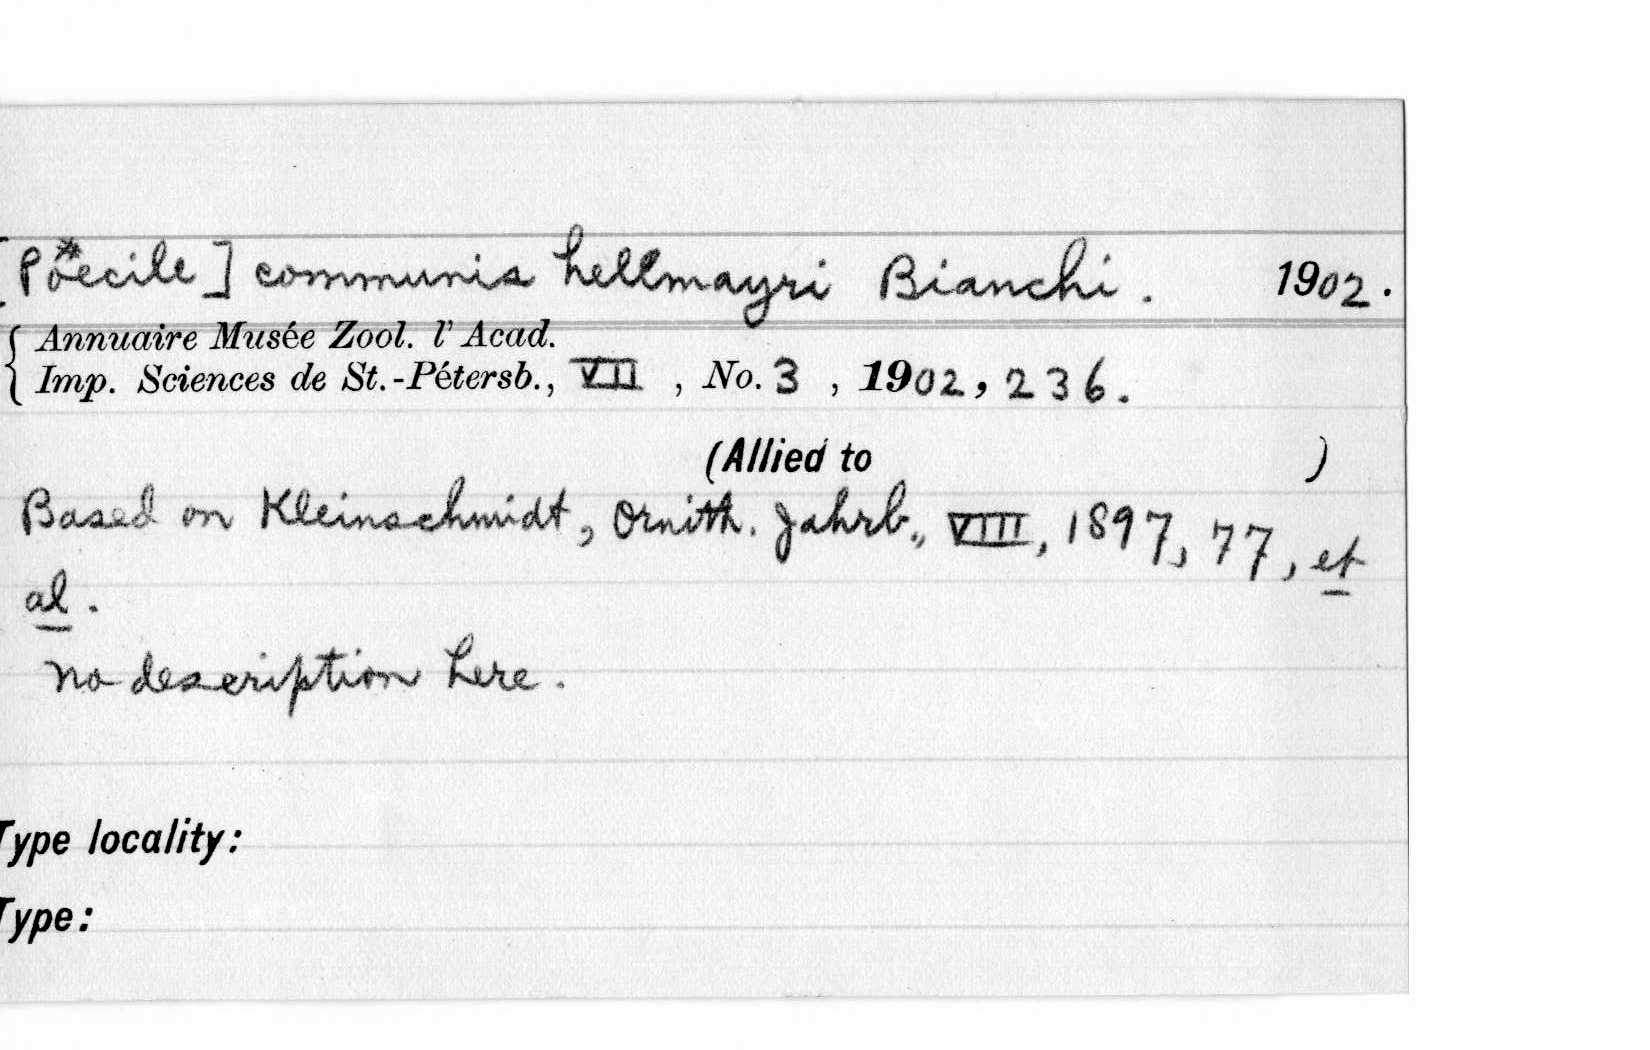 [Poecile] communis hellmayri Bianchi. 1902.
{ Annuaire Musée Zool. l' Acad.
{ Imp. Sciences de St.-Pétersb., VII , No. 3 , 1902, 236.
(Allied to )
Based on Kleinschmidt, Ornith. Jahrb., VIII, 1897, 77, et
al.
No description here.
Type locality:
Type: